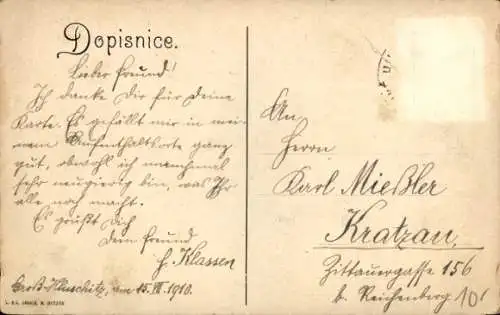 Dopisnice.
Lieber Freund!
Ich danke Dir für Deine
Karte. Es gefällt mir in mei-
nem Aufenthaltsorte ganz
gut, obwohl ich manchmal
sehr neugierig bin, was Ihr
alle noch macht.
Es grüßt Dich
Dein Freund
H. Klassen
Groß- am 15. VII. 1910.
An
Herrn
Karl Mießler
Kratzau,
Zittauergasse 156
b. Reichenberg